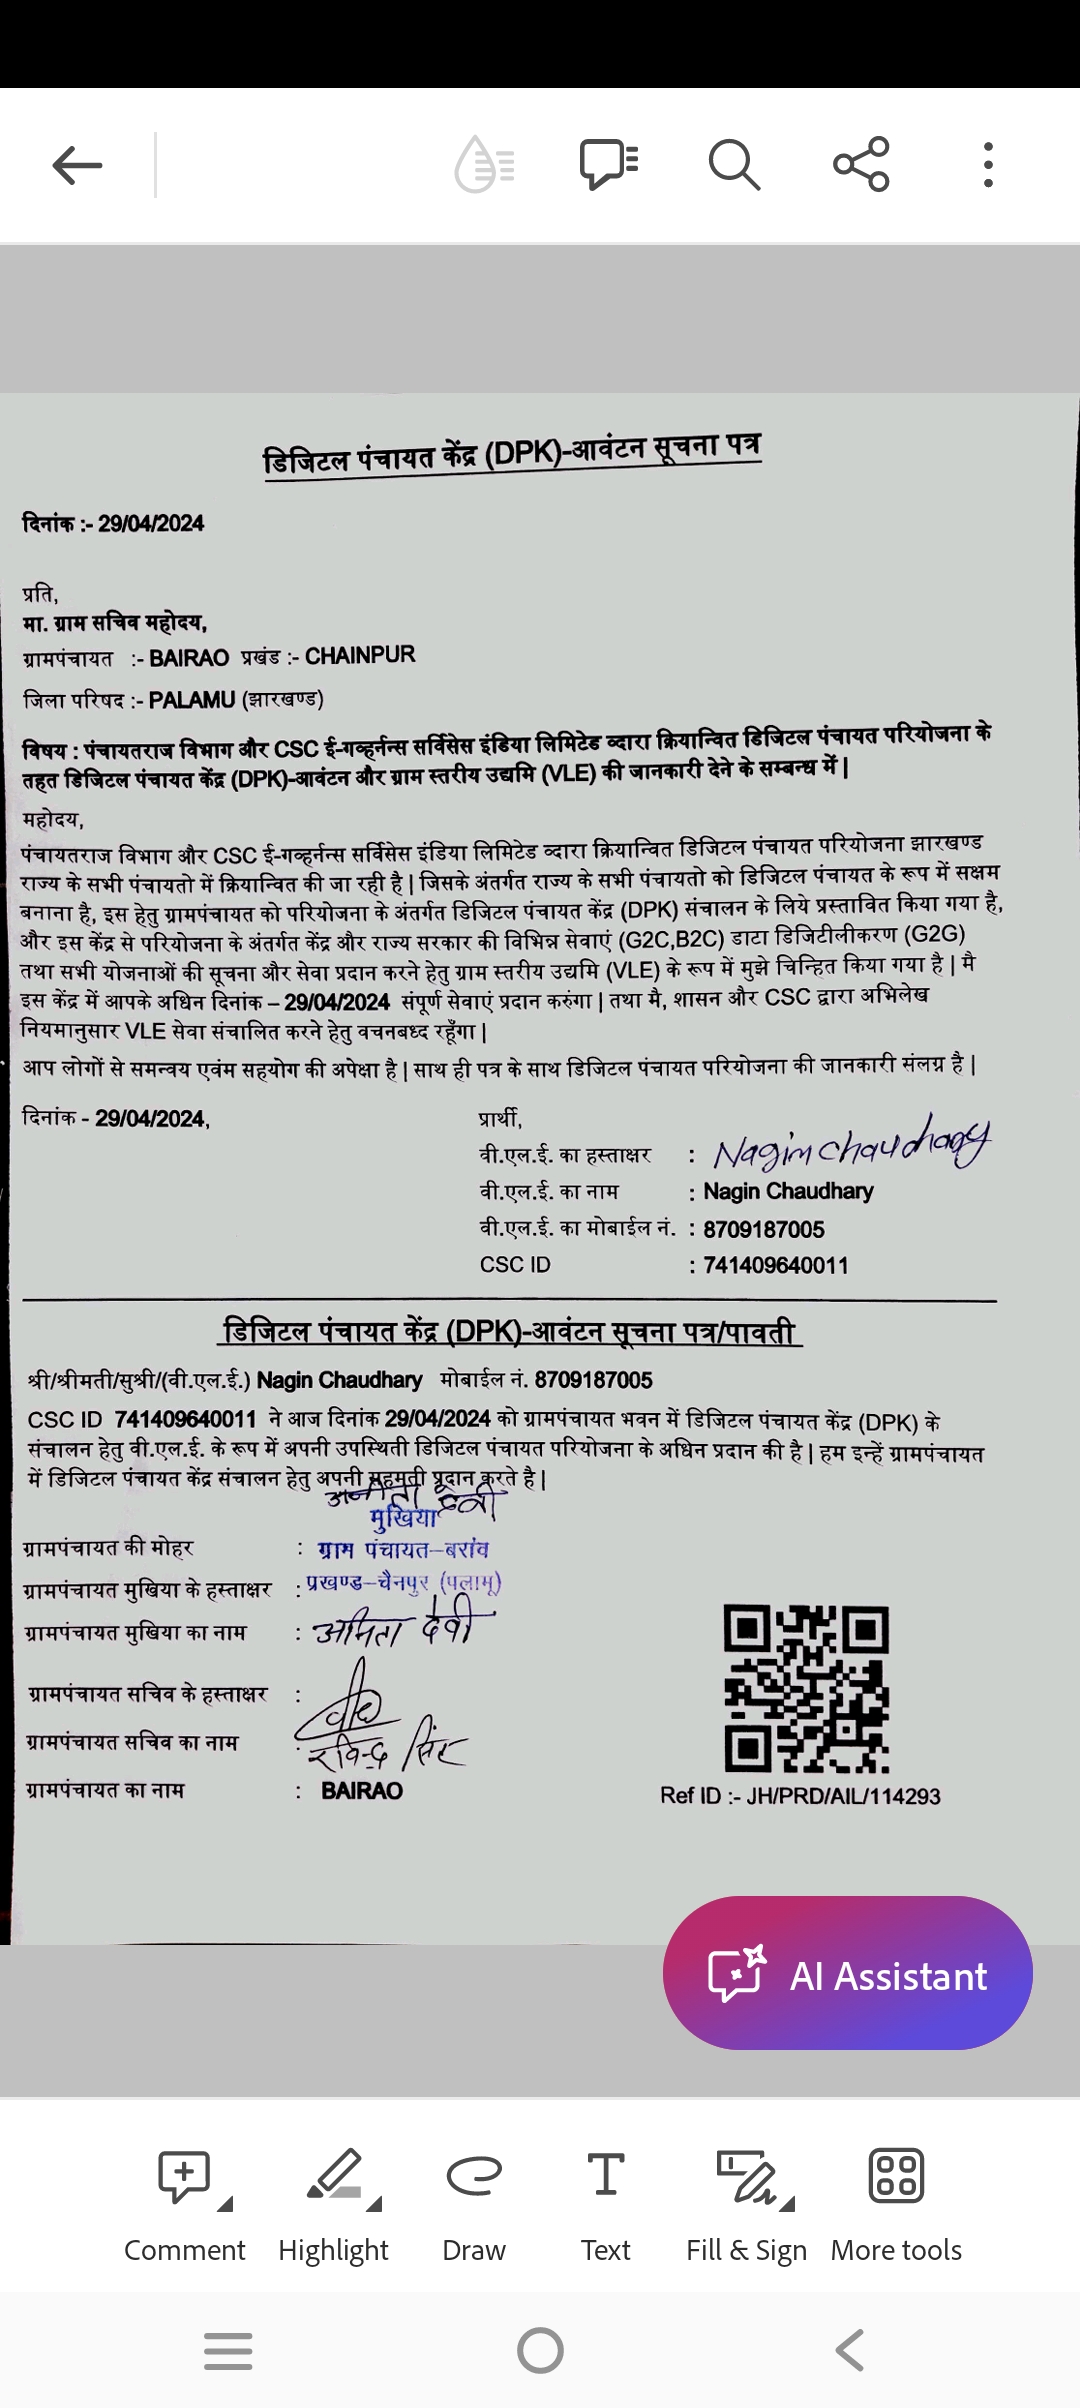 डिजिटल पंचायत केंद्र (DPK)-आवंटन सूचना पत्र
दिनांक :- 29/04/2024
प्रति,
मा. ग्राम सचिव महोदय,
ग्रामपंचायत :- BAIRAO प्रखंड :- CHAINPUR
जिला परिषद :- PALAMU (झारखण्ड)
विषय : पंचायतराज विभाग और CSC ई-गव्हर्नन्स सर्विसेस इंडिया लिमिटेड व्दारा क्रियान्वित डिजिटल पंचायत परियोजना के
तहत डिजिटल पंचायत केंद्र (DPK)-आवंटन और ग्राम स्तरीय उद्यमि (VLE) की जानकारी देने के सम्बन्ध में |
महोदय,
पंचायतराज विभाग और CSC ई-गव्हर्नन्स सर्विसेस इंडिया लिमिटेड व्दारा क्रियान्वित डिजिटल पंचायत परियोजना झारखण्ड
राज्य के सभी पंचायतो में क्रियान्वित की जा रही है | जिसके अंतर्गत राज्य के सभी पंचायतो को डिजिटल पंचायत के रूप में सक्षम
बनाना है, इस हेतु ग्रामपंचायत को परियोजना के अंतर्गत डिजिटल पंचायत केंद्र (DPK) संचालन के लिये प्रस्तावित किया गया है,
और इस केंद्र से परियोजना के अंतर्गत केंद्र और राज्य सरकार की विभिन्न सेवाएं (G2C,B2C) डाटा डिजिटीलीकरण (G2G)
तथा सभी योजनाओं की सूचना और सेवा प्रदान करने हेतु ग्राम स्तरीय उद्यमि (VLE) के रूप में मुझे चिन्हित किया गया है | मै
इस केंद्र में आपके अधिन दिनांक – 29/04/2024 संपूर्ण सेवाएं प्रदान करुंगा | तथा मै, शासन और CSC द्वारा अभिलेख
नियमानुसार VLE सेवा संचालित करने हेतु वचनबध्द रहूँगा |
आप लोगों से समन्वय एवंम सहयोग की अपेक्षा है | साथ ही पत्र के साथ डिजिटल पंचायत परियोजना की जानकारी संलग्न है |
दिनांक - 29/04/2024,
प्रार्थी,
वी.एल.ई. का हस्ताक्षर : Nagin chaudhary
वी.एल.ई. का नाम : Nagin Chaudhary
वी.एल.ई. का मोबाईल नं. : 8709187005
CSC ID : 741409640011
डिजिटल पंचायत केंद्र (DPK)-आवंटन सूचना पत्र/पावती
श्री/श्रीमती/सुश्री/(वी.एल.ई.) Nagin Chaudhary मोबाईल नं. 8709187005
CSC ID 741409640011 ने आज दिनांक 29/04/2024 को ग्रामपंचायत भवन में डिजिटल पंचायत केंद्र (DPK) के
संचालन हेतु वी.एल.ई. के रूप में अपनी उपस्थिती डिजिटल पंचायत परियोजना के अधिन प्रदान की है | हम इन्हें ग्रामपंचायत
में डिजिटल पंचायत केंद्र संचालन हेतु अपनी सहमती प्रदान करते है |
मुखिया
ग्रामपंचायत की मोहर : ग्राम पंचायत–बरांव
ग्रामपंचायत मुखिया के हस्ताक्षर : प्रखण्ड–चैनपुर (पलामू)
ग्रामपंचायत मुखिया का नाम : अनिता देवी
ग्रामपंचायत सचिव के हस्ताक्षर :
ग्रामपंचायत सचिव का नाम : रविन्द्र सिंह
ग्रामपंचायत का नाम : BAIRAO
Ref ID :- JH/PRD/AIL/114293
AI Assistant
Comment Highlight Draw Text Fill & Sign More tools